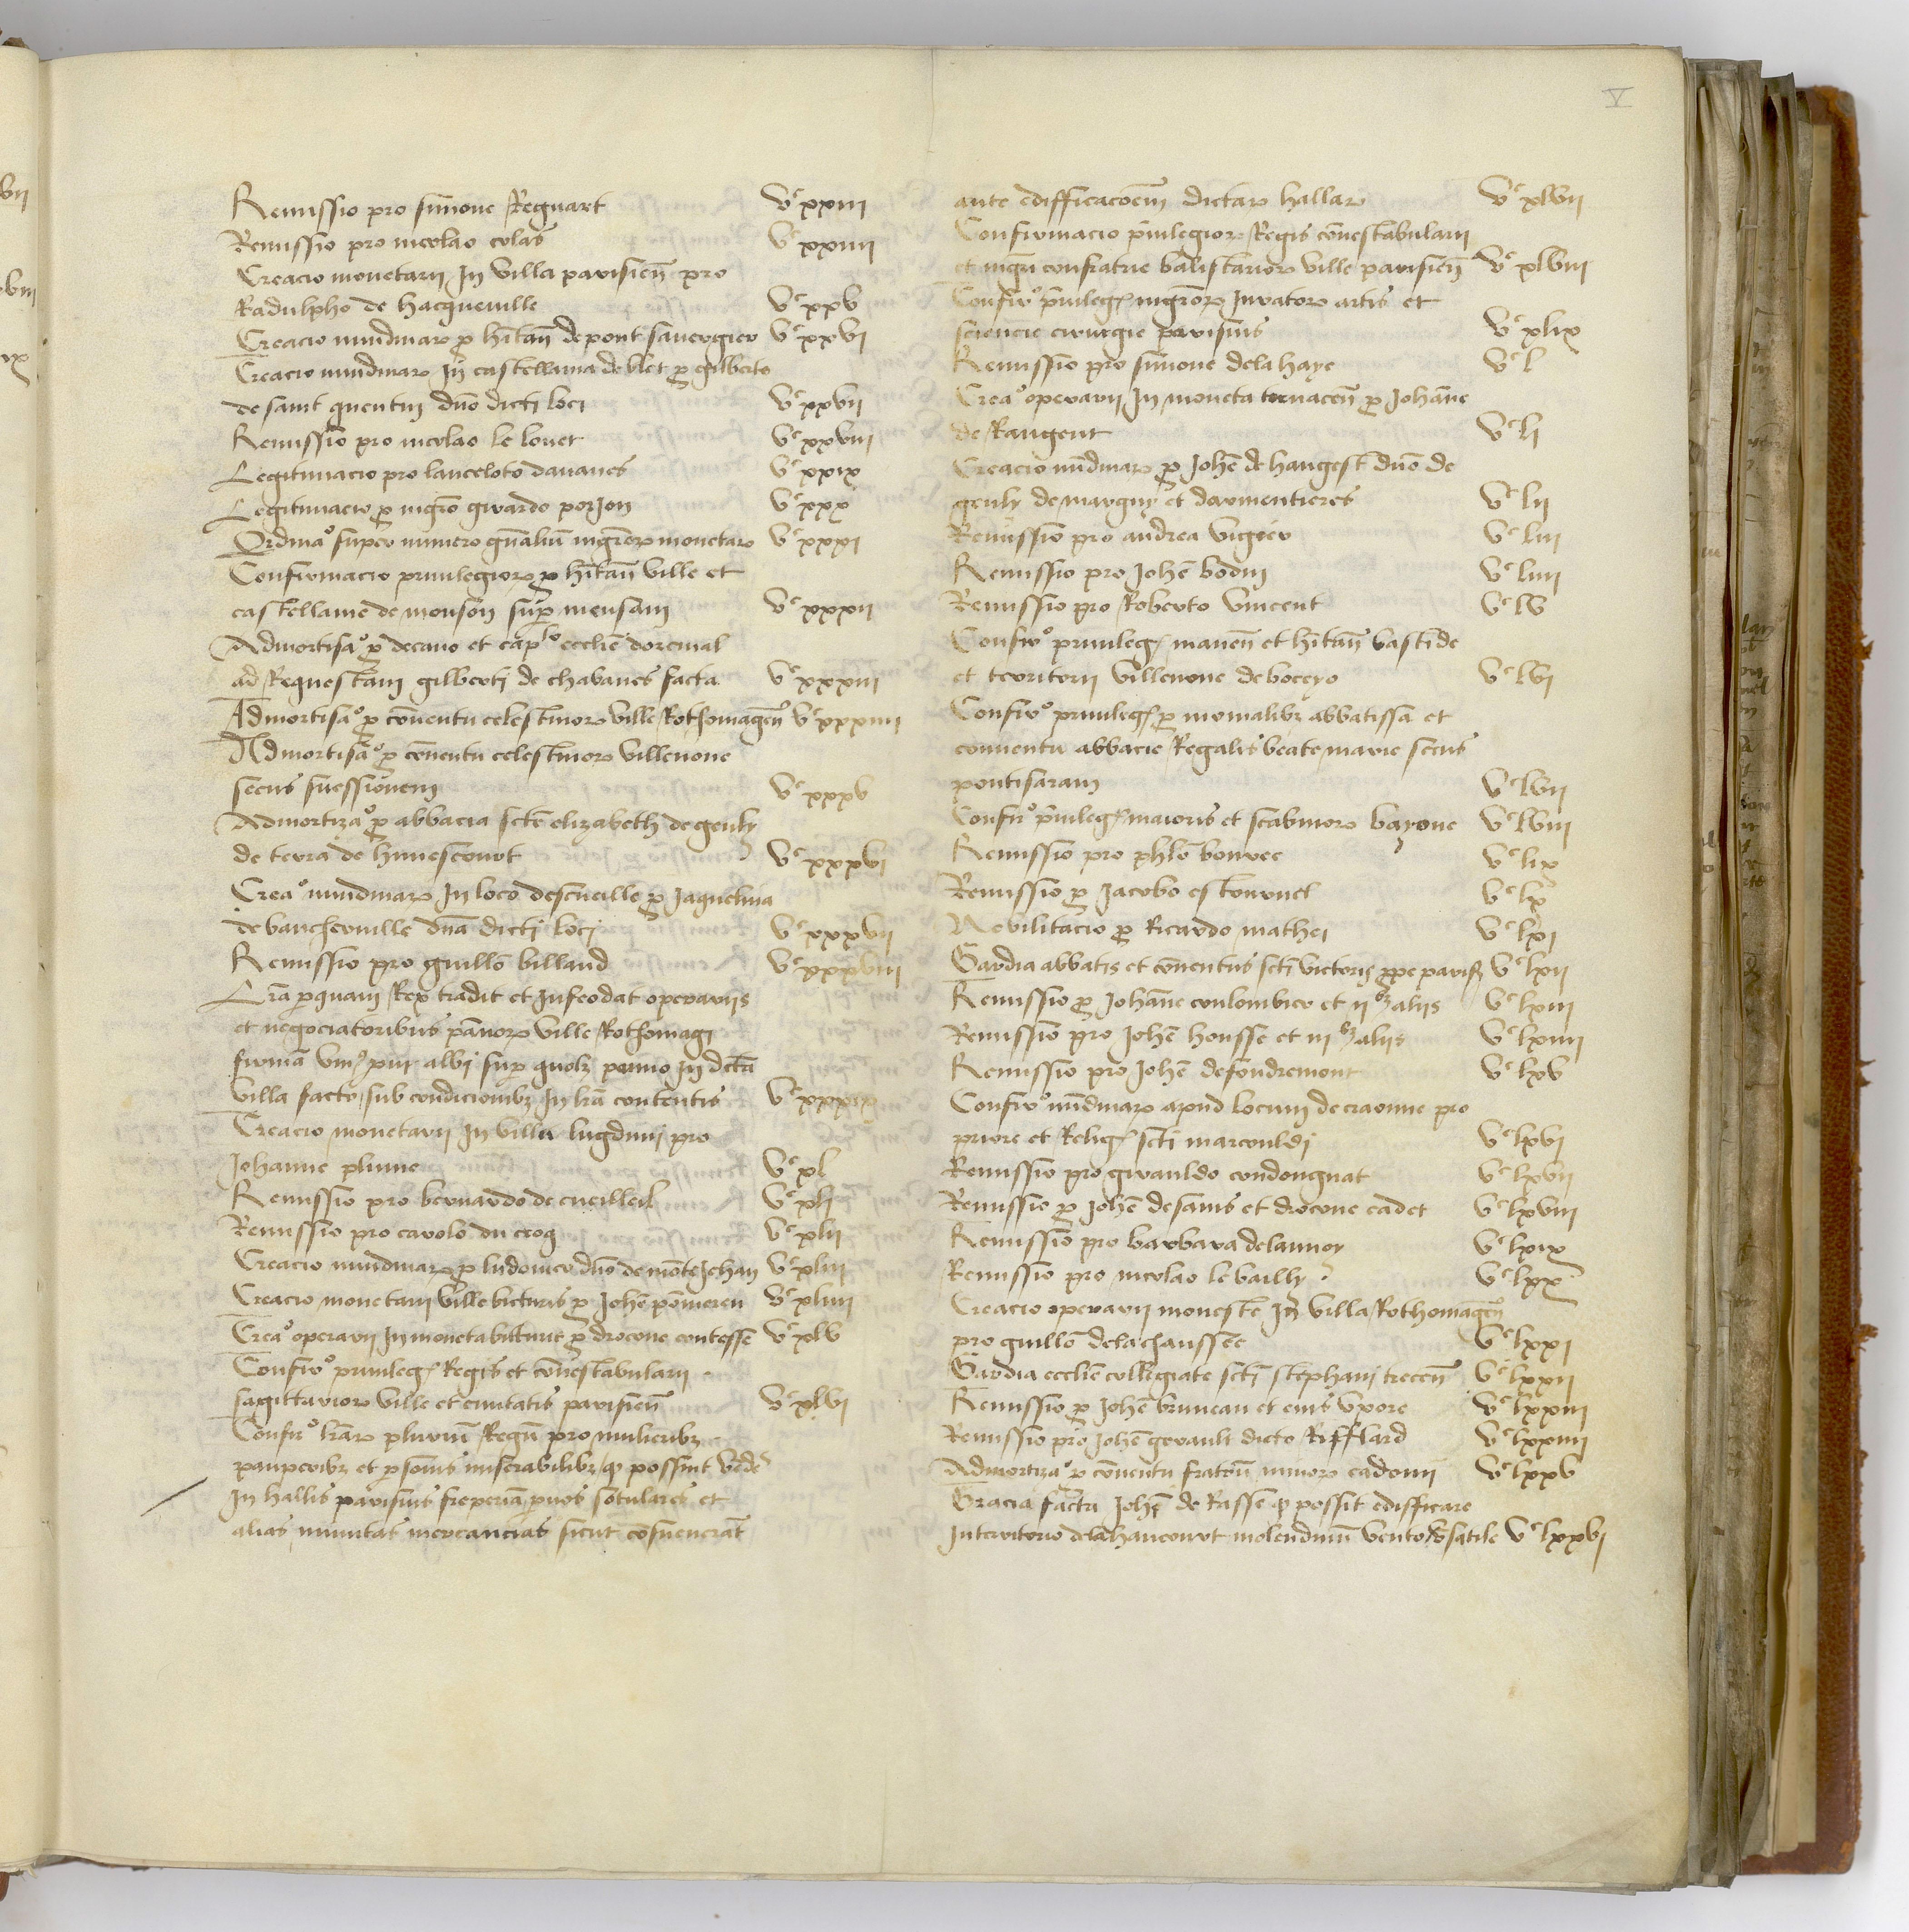 V
Remissio pro simone Regnart Vᶜ xxiii
Remissio pro nicolao colas Vᶜ xxiiii
Creacio monetarii In villa parisien̄ pro
Radulpho de hacqueville Vᶜ xxv
Creacio nundinar̄ p̄ hītan̄ de pont sauergier Vᶜ xxvi
Creacio nundinar̄ In castellania de blet p̄ gilberto
de saint quentin dn̄o dicti loci Vᶜ xxvii
Remissio pro nicolao le louet Vᶜ xxviii
Legitimacio pro lanceloto dauanes Vᶜ xxix
Legitimacio p̄ mgr̄o girardo porion Vᶜ xxx
Ordina° super numero gn̄alium mgr̄or̄ monetar̄ Vᶜ xxxi
Confirmacio priuilegior̄ p̄ hītan̄ ville et
castellanie de monson sup̄ mensam Vᶜ xxxii
Admortisa° p̄ decano et cap̄lo ecclie dorcinal
ad Requestam gilberti de chabanes facta Vᶜ xxxiii
Admortisa° p̄ cōuentu celestinor̄ ville Rothomagen̄ Vᶜ xxxiiii
Admortisa° p̄ cōuentu celestinor̄ villenoue
secus suessionem Vᶜ xxxv
Admortiza° p̄ abbacia scte elizabeth de genly
de terra de hunescourt Vᶜ xxxvi
Crea° nundinar̄ In loco descueille p̄ Jaquelina
de baucherville dn̄a dicti loci Vᶜ xxxvii
Remissio pro guillo billaud Vᶜ xxxviii
Lr̄a p̄quam Rex tradit et Infeodat operariis
et negociatoribus pānor̄ ville Rothomagi
firmā viii° pur albi sup̄ quolz panno In dcta
villa facto sub condicionibz In lr̄a contentis Vᶜ xxxix
Creacio monetarii In villa lugduni pro
Johanne plume Vᶜ xl
Remissio pro bernardo de cueilled Vᶜ xli
Remissio pro carolo du crog Vᶜ xlii
Creacio nundinar̄ p̄ ludouico dn̄o de mōte Jehan Vᶜ xliii
Creacio monetarii ville bituris p̄ Johē pomereu Vᶜ xliiii
Crea° operarii In moneta bitturie p̄ drocone contesse Vᶜ xlv
Confir° priuileg̃ Regis et cōnestabularii
sagittarior̄ ville et ciuitatis parisien̄ Vᶜ xlvi
Confir° lr̄ar̄ plurium Regū pro mulieribz
pauperibz et p̄sonis miserabilibz qd̄ possint vēde
In hallis parisius freperiā puos sotulares et
alias minutas mercancias sicut cōsueuerāt
ante edifficacoēm dictar̄ hallar̄ Vᶜ xlvii
Confirmacio priuilegior̄ Regis cōnestabularii
et mgrī confratrie balistarior̄ ville parisien̄ Vᶜ xlviii
Confir° priuileg̃ mgr̄or̄ Jurator̄ artis et
sciencie cirurgie parisius Vᶜ xlix
Remissio pro simone dela haye Vᶜ l
Crea° operarii In moneta tornacen̄ p̄ Johāne
de Rangent Vᶜ li
Creacio nūdinar̄ p̄ Johē de hangest dn̄o de
genly de margny et darmentieres Vᶜ lii
Remissio pro andrea vigier Vᶜ liii
Remissio pro Johē bodin Vᶜ liiii
Remissio pro Roberto vincent Vᶜ lv
Confir° priuileg̃ manen̄ et hītan̄ bastide
et territorii villenoue de boceyo Vᶜ lvi
Confir° priuileg̃ p̄ monialibz abbatissa et
conuentu abbacie Regalis beate marie secus
pontisaram Vᶜ lvii
Confir° priuileg̃ maioris et scabinor̄ bayone Vᶜ lviii
Remissio pro phlo bourree Vᶜ lix
Remissio p̄ Jacobo estournel Vᶜ lx
Nobilitacio p̄ Ricardo mathei Vᶜ lxi
Gardia abbatis et cōuentus scti victoris ppe paris̄ Vᶜ lxii
Remissio p̄ Johāne coulombier et ii bz aliis Vᶜ lxiii
Remissio pro Johē housse et iii bz aliis Vᶜ lxiiii
Remissio pro Johē defondremont Vᶜ lxv
Confir° nūdinar̄ apud locum de craonne pro
priore et Relig̃ scti marcouldi Vᶜ lxvi
Remissio pro girauldo condongnat Vᶜ lxvii
Remissio p̄ Johē desains et drocone cadet Vᶜ lxviii
Remissio pro barbara delannoy Vᶜ lxix
Remissio pro nicolao le bailly Vᶜ lxx
Creacio operarii monete In villa Rothomagen̄
pro guillo delachaussee Vᶜ lxxi
Gardia ecclie collegiate scti stephani trecen̄ Vᶜ lxxii
Remissio p̄ Johē bruneau et eius vxore Vᶜ lxxiii
Remissio pro Johē gerault dicto Rifflard Vᶜ lxxiiii
Admortiza° p̄ cōuentu fratrū minor̄ cadomi Vᶜ lxxv
Gracia facta Johē de Rasse qd̄ possit edifficare
Interritorio delahancourt molendinū ventoꝟsatile Vᶜ lxxvi